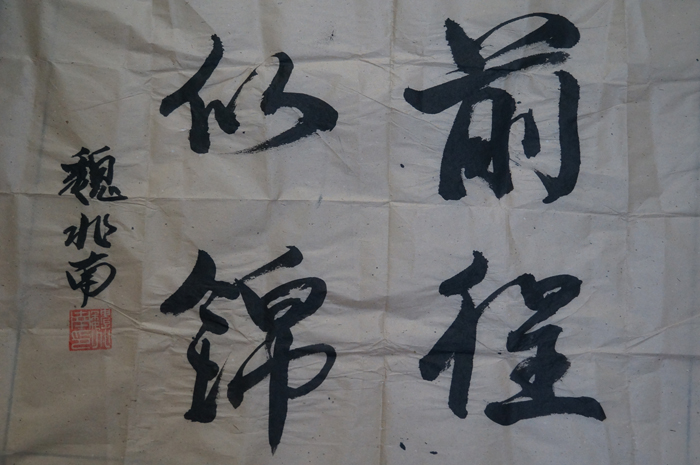 前程
似錦
魏兆南